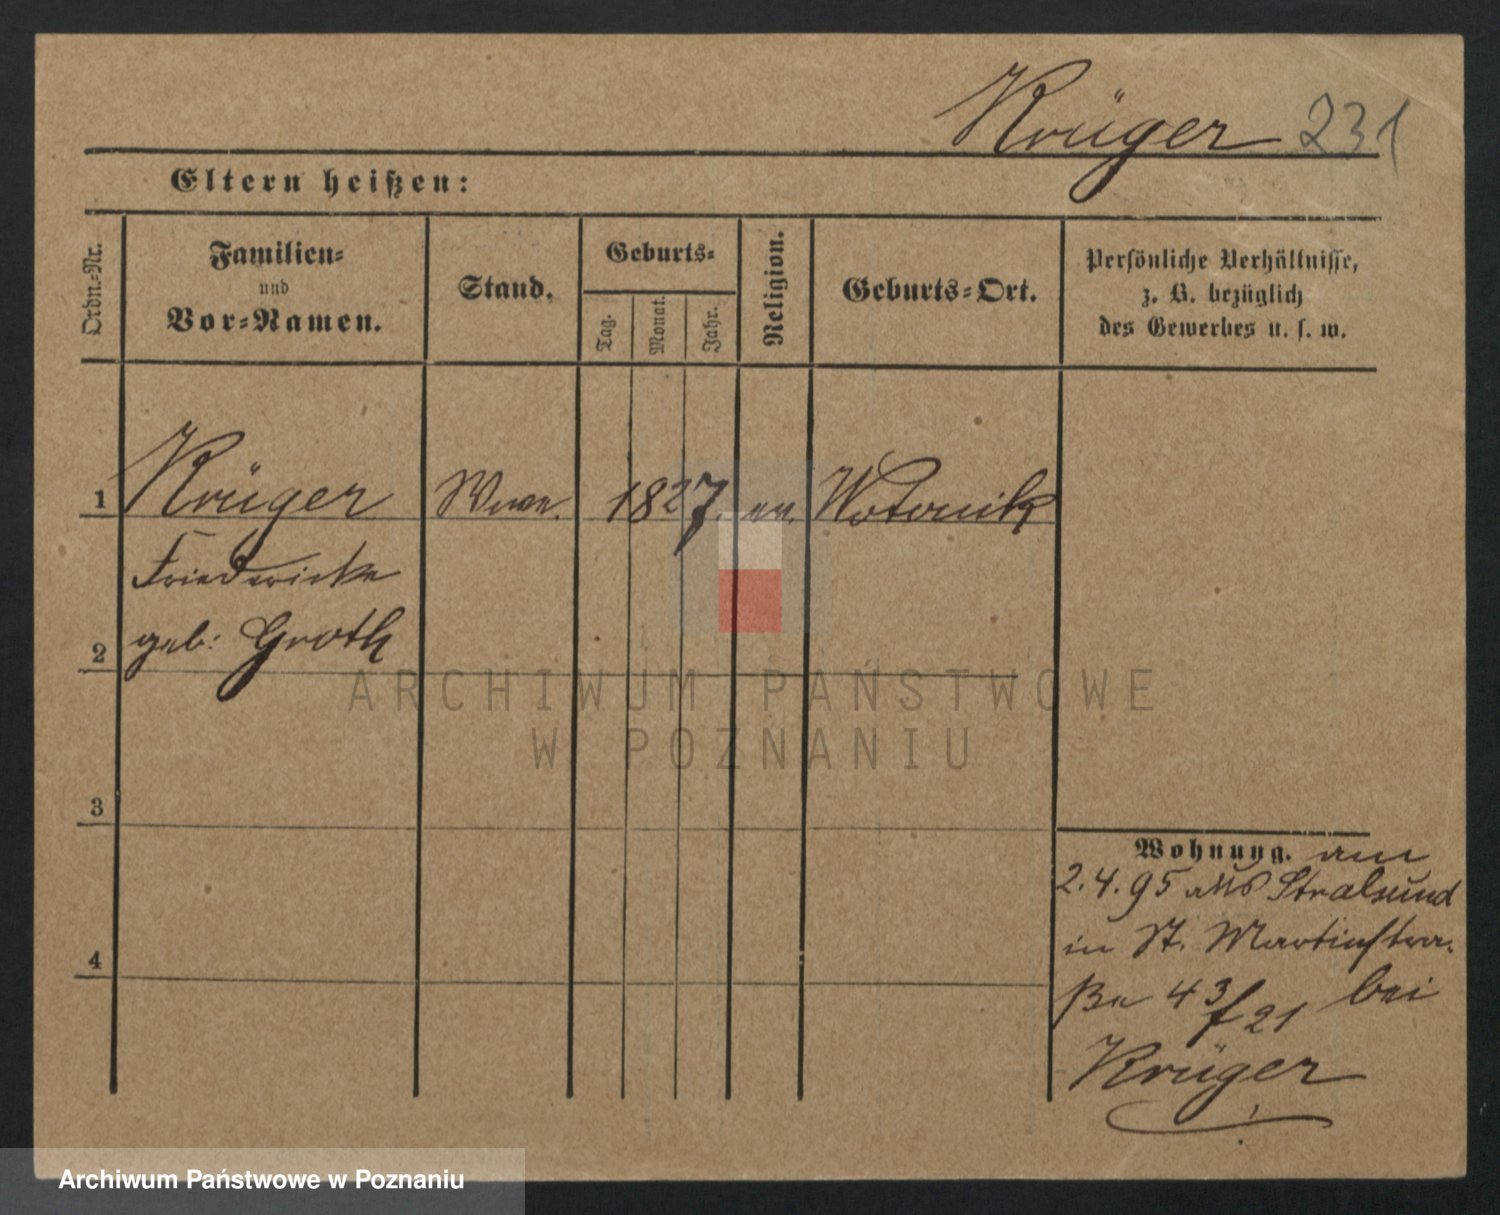 Krüger 231
Eltern heißen:
Ordn.-Nr.
Familien-
und
Vor-Namen.
Stand.
Geburts-
Tag.
Monat.
Jahr.
Religion.
Geburts-Ort.
Persönliche Verhältnisse,
z. B. bezüglich
des Gewerbes u. s. w.
1 Krüger Wwe. 1827 ev. Wotonik
Friedericke
2 geb: Groth
3
4
Wohnung. am
2.4.95 aus Stralsund
in St. Martinstra-
ße 43/21 bei
Krüger
ARCHIWUM PAŃSTWOWE
W POZNANIU
Archiwum Państwowe w Poznaniu